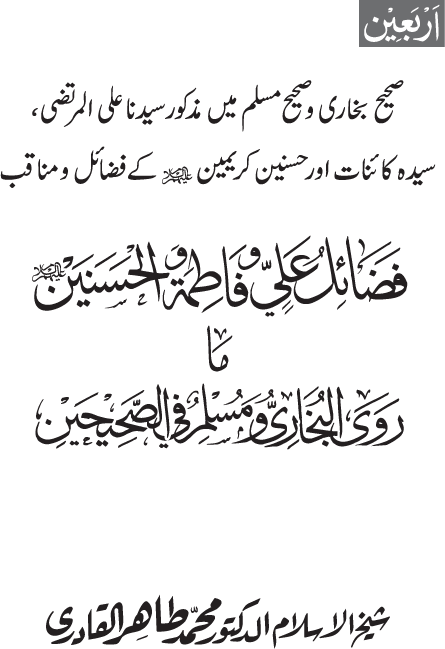 اَرْبَعِيْن
صحیح بخاری و صحیح مسلم میں مذکور سیدنا علی المرتضی،
سیدہ کائنات اور حسنین کریمین علیہم السلام کے فضائل و مناقب
فَضَائِلُ عَلِيٍّ وَفَاطِمَةَ وَالْحَسَنَيْنِ عليهم السلام
مَا
رَوَى الْبُخَارِيُّ وَمُسْلِمٌ فِي الصَّحِيْحَيْنِ
شیخ الاسلام الدکتور محمد طاہر القادری